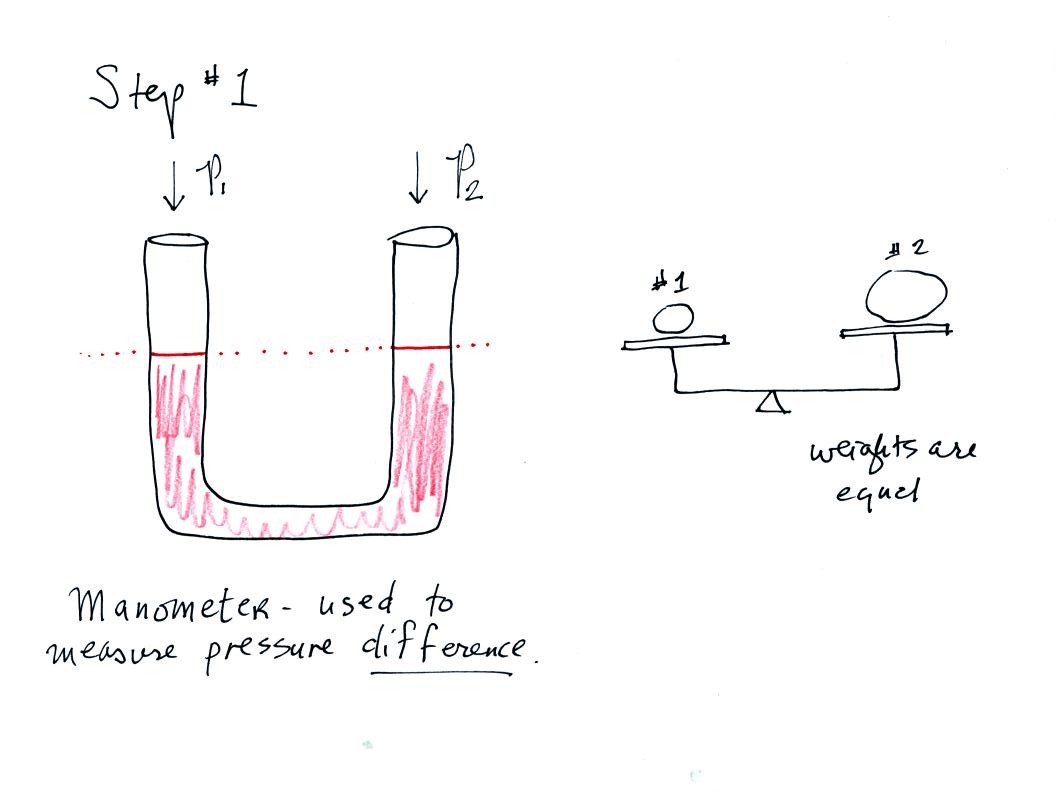 Step #1
P₁
P₂
#1
#2
weights are
equal
Manometer - used to
measure pressure difference.